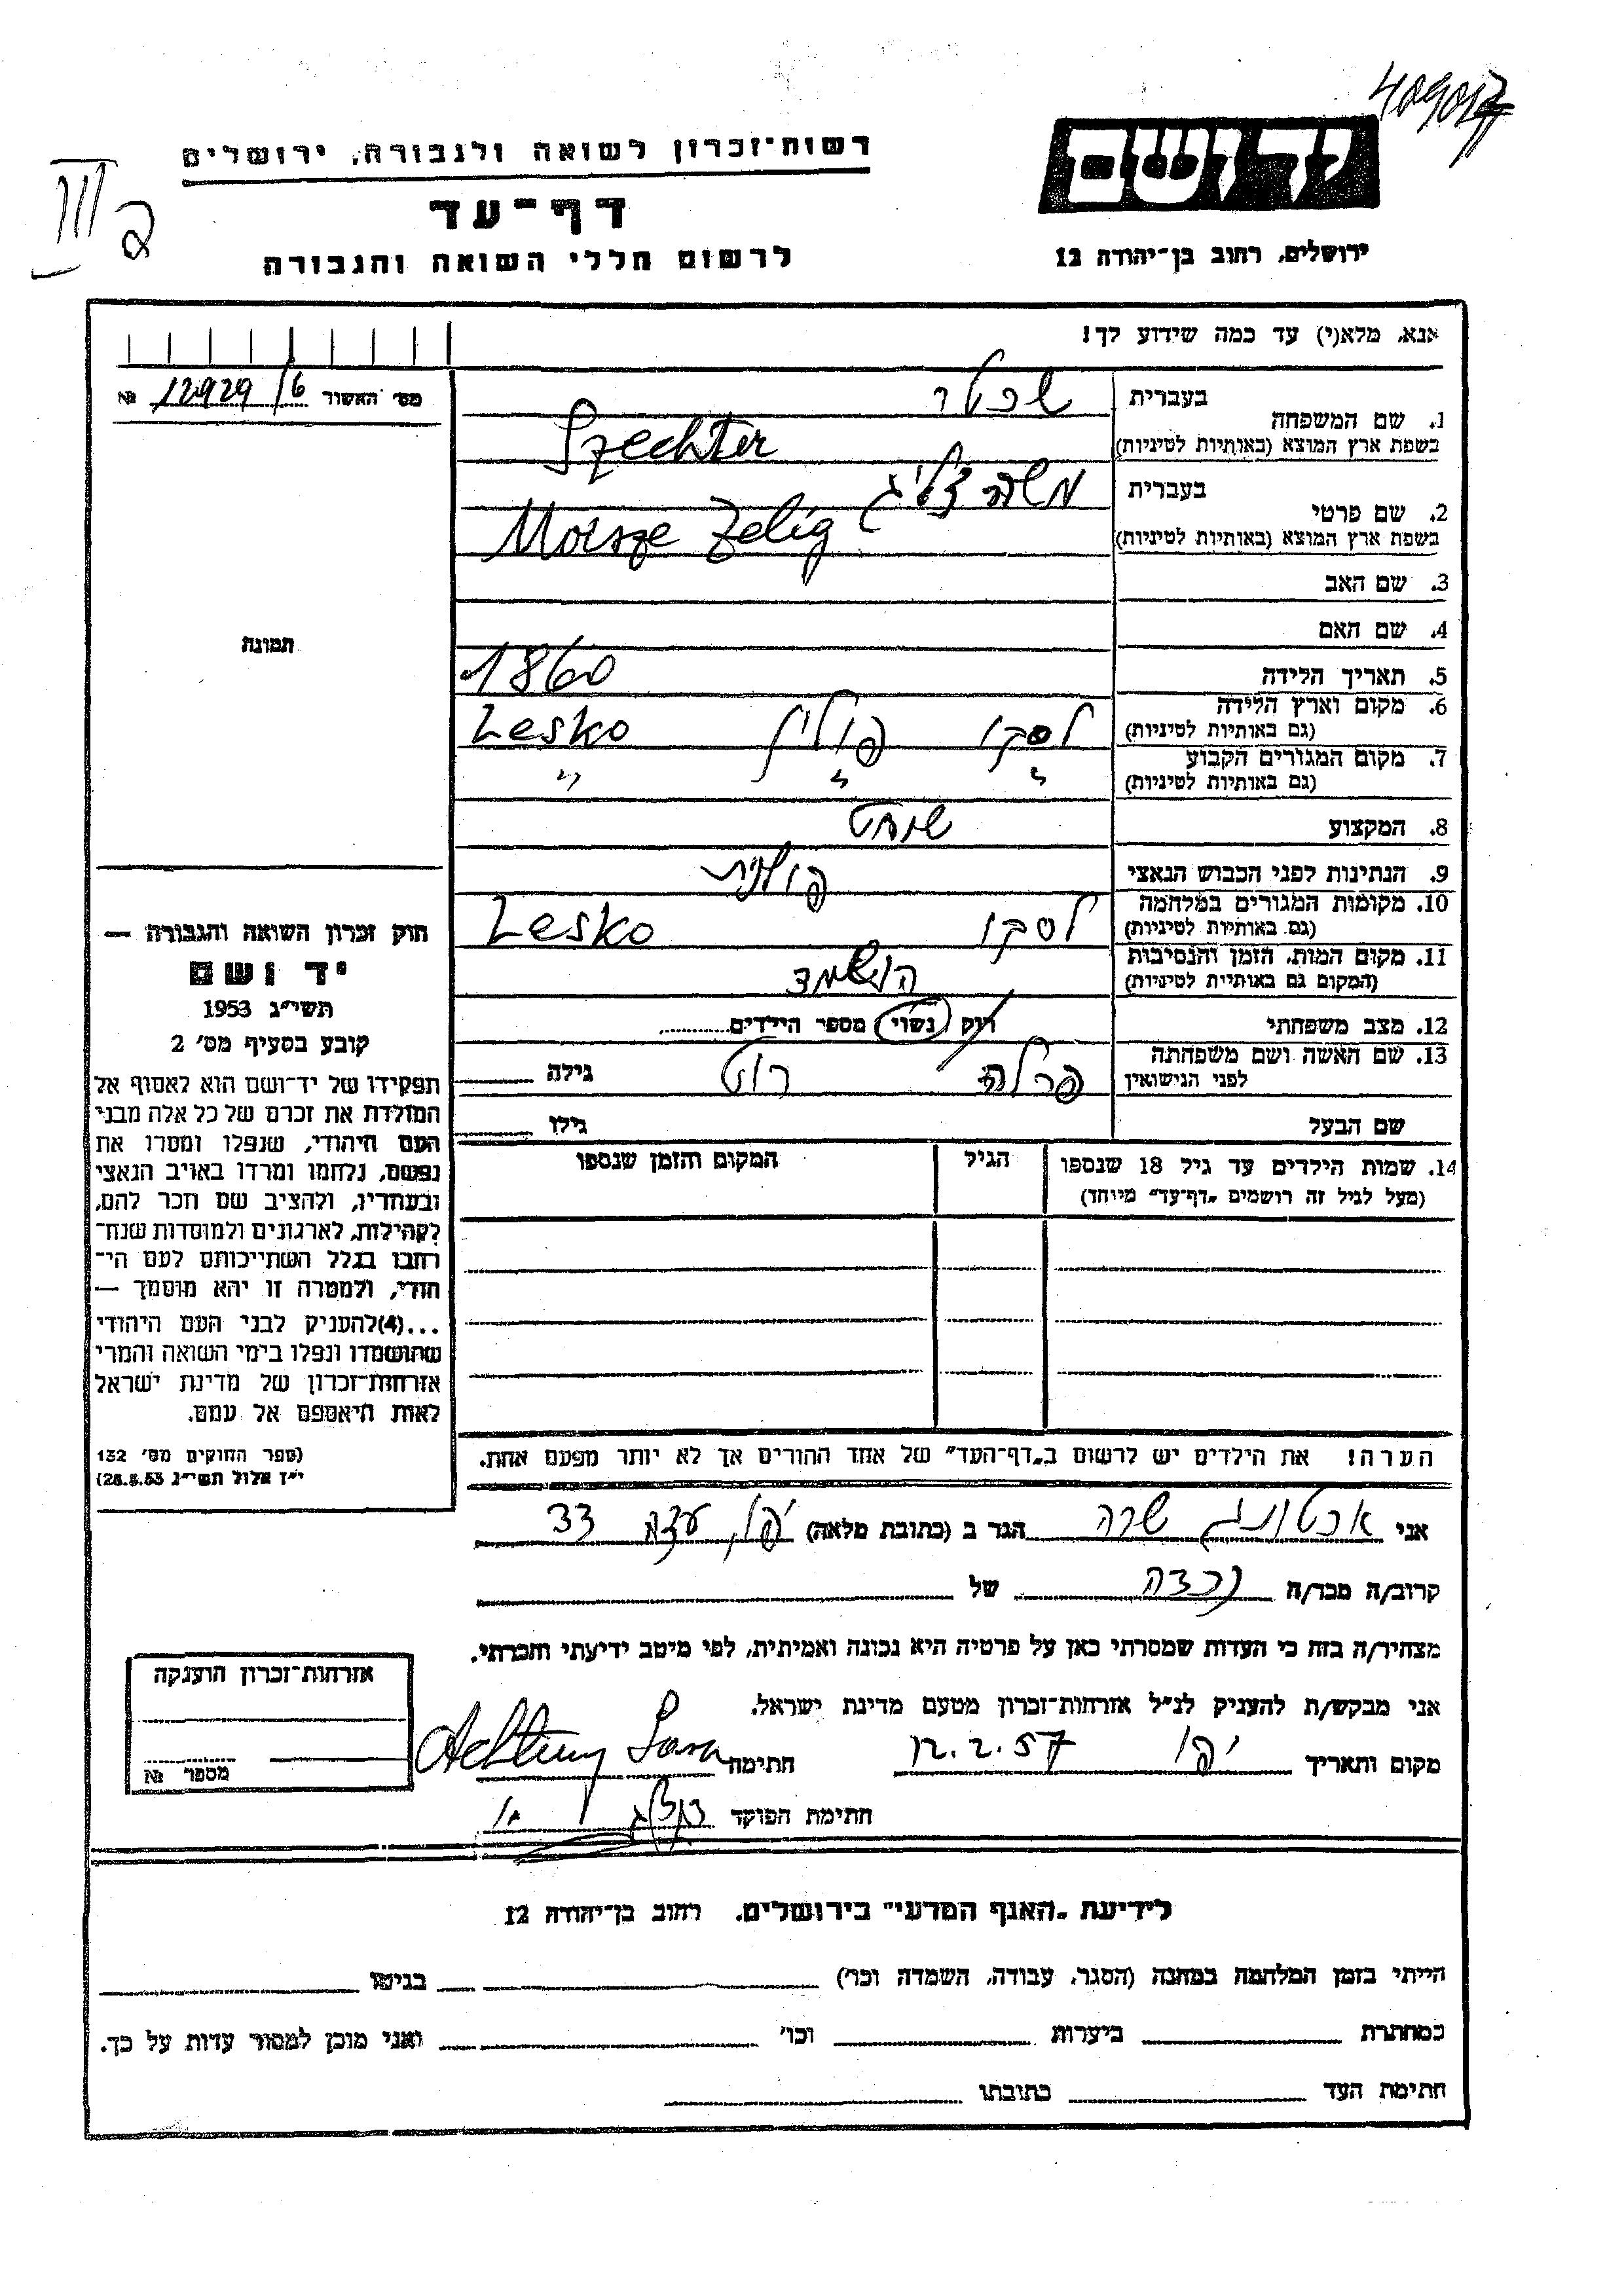 409017
יד ושם
ירושלים, רחוב בן־יהודה 12
רשות־זכרון לשואה ולגבורה, ירושלים
דף־עד
לרשום חללי השואה והגבורה
III
אנא, מלא(י) עד כמה שידוע לך!
מס׳ האשור 12929/6 №
תמונה
1. שם המשפחה
בעברית שכטר
בשפת ארץ המוצא (באותיות לטיניות) Szechter
2. שם פרטי
בעברית משה זליג
בשפת ארץ המוצא (באותיות לטיניות) Mojsze Zelig
3. שם האב
4. שם האם
5. תאריך הלידה 1860
6. מקום וארץ הלידה
(גם באותיות לטיניות) לסקו פולין Lesko
7. מקום המגורים הקבוע
(גם באותיות לטיניות) " " "
8. המקצוע שוחט
9. הנתינות לפני הכבוש הנאצי פולנית
10. מקומות המגורים במלחמה
(גם באותיות לטיניות) לסקו Lesko
11. מקום המות, הזמן והנסיבות
(המקום גם באותיית לטיניות) הושמד
12. מצב משפחתי רוק נשוי מספר הילדים
13. שם האשה ושם משפחתה
לפני הנישואין פרלה רוט גילה
שם הבעל גילו
14. שמות הילדים עד גיל 18 שנספו הגיל המקום והזמן שנספו
(מעל לגיל זה רושמים „דף־עד" מיוחד)
חוק זכרון השואה והגבורה —
יד ושם
תשי״ג 1953
קובע בסעיף מס׳ 2
תפקידו של יד־ושם הוא לאסוף אל
המולדת את זכרם של כל אלה מבני
העם היהודי, שנפלו ומסרו את
נפשם, נלחמו ומרדו באויב הנאצי
ובעוזריו, ולהציב שם וזכר להם,
לקהילות, לארגונים ולמוסדות שנח־
רבו בגלל השתייכותם לעם הי־
הודי, ולמטרה זו יהא מוסמך —
...(4)להעניק לבני העם היהודי
שהושמדו ונפלו בימי השואה והמרי
אזרחות־זכרון של מדינת ישראל
לאות היאספם אל עמם.
(ספר החוקים מס׳ 132
י״ז אלול תשי״ג 28.8.53)
הערה! את הילדים יש לרשום ב„דף־העד" של אחד ההורים אך לא יותר מפעם אחת.
אני אכטונג שרה הגר ב (כתובת מלאה) יפו, עזה 33
קרוב/ה מכר/ה נכדה של
מצהיר/ה בזה כי העדות שמסרתי כאן על פרטיה היא נכונה ואמיתית, לפי מיטב ידיעתי והכרתי.
אני מבקש/ת להעניק לנ״ל אזרחות־זכרון מטעם מדינת ישראל.
מקום ותאריך יפו 12.2.57 חתימה Achtung Sara
חתימת הפוקד
אזרחות־זכרון הוענקה
מספר №
לידיעת „האגף המדעי" בירושלים, רחוב בן־יהודה 12
הייתי בזמן המלחמה במחנה (הסגר, עבודה, השמדה וכו׳) בגיטו
במחתרת ביערות וכו׳ ואני מוכן למסור עדות על כך.
חתימת העד כתובתו